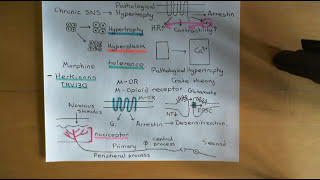 Chronic SNS → Pathological
Hypertrophy
Arrestin
HR↑
Contractility↑
Hypertrophy
Hyperplasia
Ca²⁺
Morphine
tolerance
Pathological Hypertrophy
- Herkinorin
M-OR
Crate theory
TRV130
M-Opioid receptor
Glutamate
Noxious
stimulus
M-OR
NT
EPSC
G.
Arrestin → Desensitization
nociceptor
Primary
central
process
Second
Peripheral process